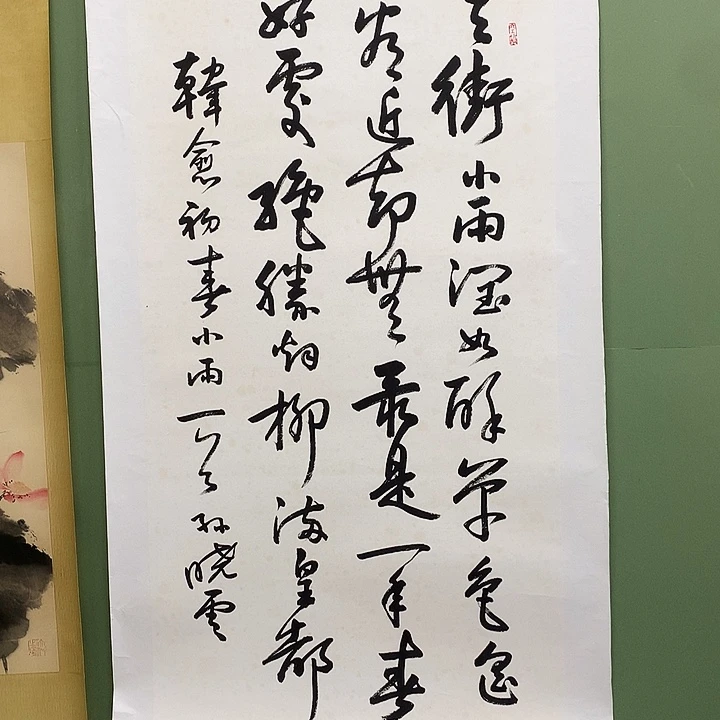 天街小雨潤如酥草色遥
看近却無最是一年春
好處絶勝烟柳滿皇都
韓愈初春小雨一首 孙晓雲